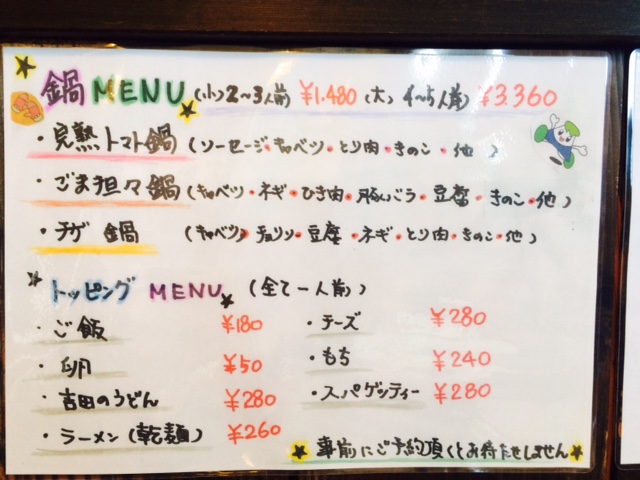 鍋 MENU (小) 2〜3人前 ¥1.480 (大) 4〜5人前 ¥3.360
・完熟トマト鍋 (ソーセージ・キャベツ・とり肉・きのこ・他)
・ごま担々鍋 (キャベツ・ネギ・ひき肉・豚バラ・豆腐・きのこ・他)
・チゲ鍋 (キャベツ・チョリソ・豆腐・ネギ・とり肉・きのこ・他)
トッピング MENU (全て一人前)
・ご飯 ¥180 ・チーズ ¥280
・卵 ¥50 ・もち ¥240
・吉田のうどん ¥280 ・スパゲッティー ¥280
・ラーメン(乾麺) ¥260
事前にご予約頂くとお待たせしません